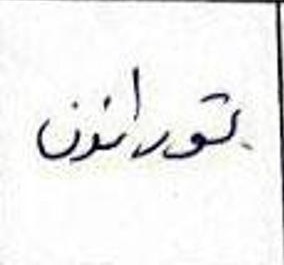 بتورانن